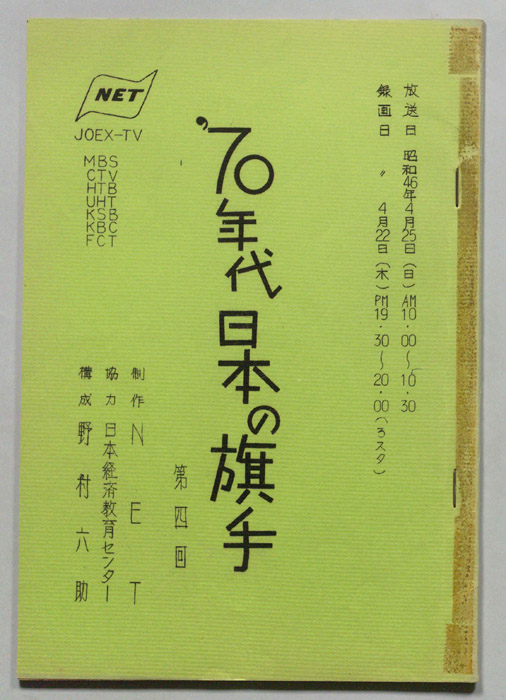 放送日 昭和46年4月25日(日)AM10・00〜10・30
録画日 〃 4月22日(木)PM19・30〜20・00(ろスタ)
'70年代 日本の旗手
第四回
NET
JOEX-TV
MBS
CTV
HTB
UHT
KSB
KBC
FCT
制作 NET
協力 日本経済教育センター
構成 野村六助